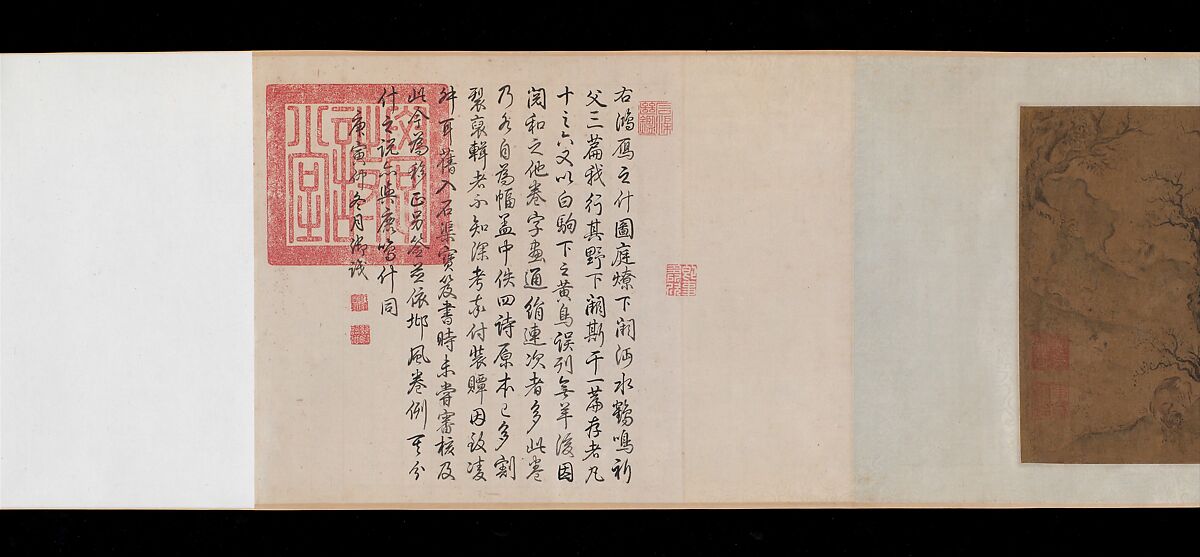 右鴻鴈之什圖庭燎下闕沔水鶴鳴祈
父三篇我行其野下闕斯干一篇存者凡
十之六又以白駒下之黃鳥誤列無羊後因
閱和之他卷字畫通絹連次者多此卷
乃各自為幅盖中佚四詩原本已多割
裂裒輯者不知深考率付裝贉因致凌
舛耳舊入石渠寶笈書時未嘗審核及
此今為移正另簽並依邶風卷例其分
什之說亦與鹿鳴什同
庚寅仲冬月御識